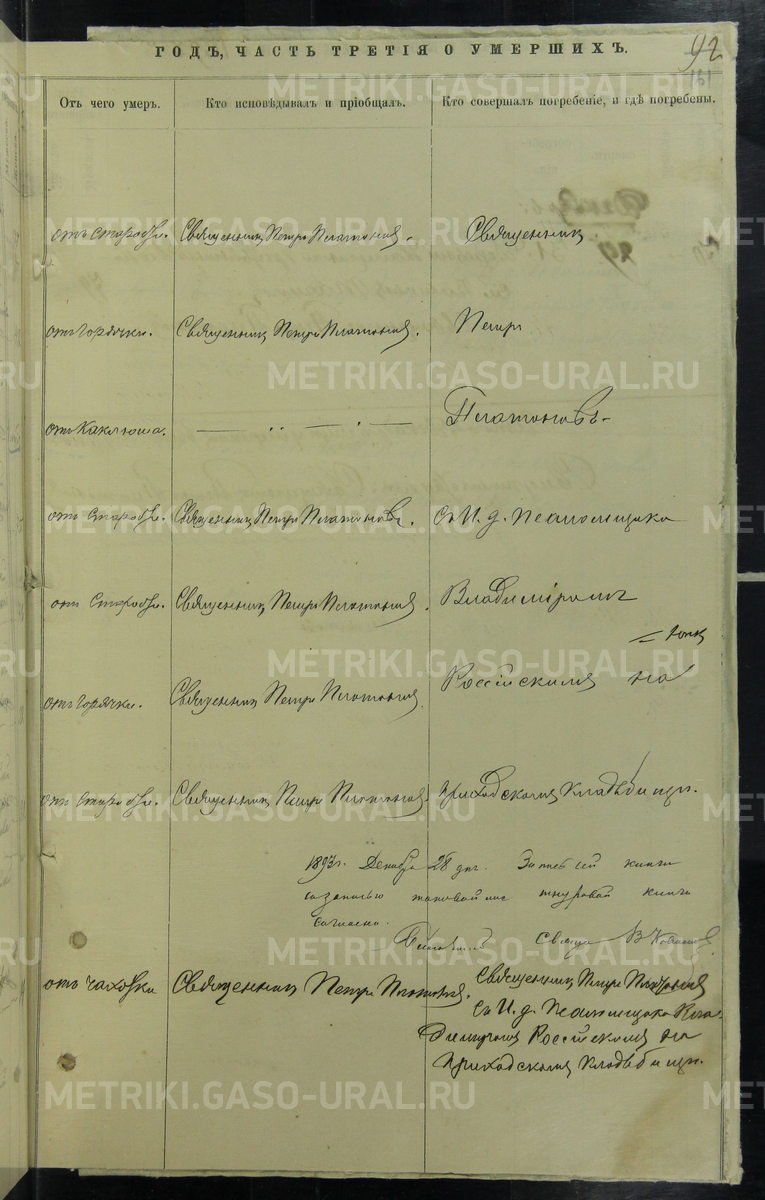 92
161
ГОДЪ, ЧАСТЬ ТРЕТІЯ О УМЕРШИХЪ.
Отъ чего умеръ.
Кто исповѣдывалъ и пріобщалъ.
Кто совершалъ погребеніе, и гдѣ погребены.
отъ старости.
Священникъ Петръ Платоновъ.
Священникъ
отъ горячки.
Священникъ Петръ Платоновъ.
Петръ
отъ Каклюша.
Платоновъ
отъ Старости.
Священникъ Петръ Платоновъ.
Съ И. д. Псаломщика
отъ Старости.
Священникъ Петръ Платоновъ.
Владиміромъ
отъ горячки.
Священникъ Петръ Платоновъ.
Россійскимъ на
отъ Старости.
Священникъ Петръ Платоновъ.
приходскомъ Кладбищѣ.
Декабря 28 дня. книги
съ записью таковой шнуровой книги
согласно.
Свящ. В.
отъ чахотки
Священникъ Петръ Платоновъ.
Священникъ Петръ Платоновъ
Съ И. д. Псаломщика Вла-
диміромъ Россійскимъ на
приходскомъ Кладбищѣ.
METRIKI.GASO-URAL.RU